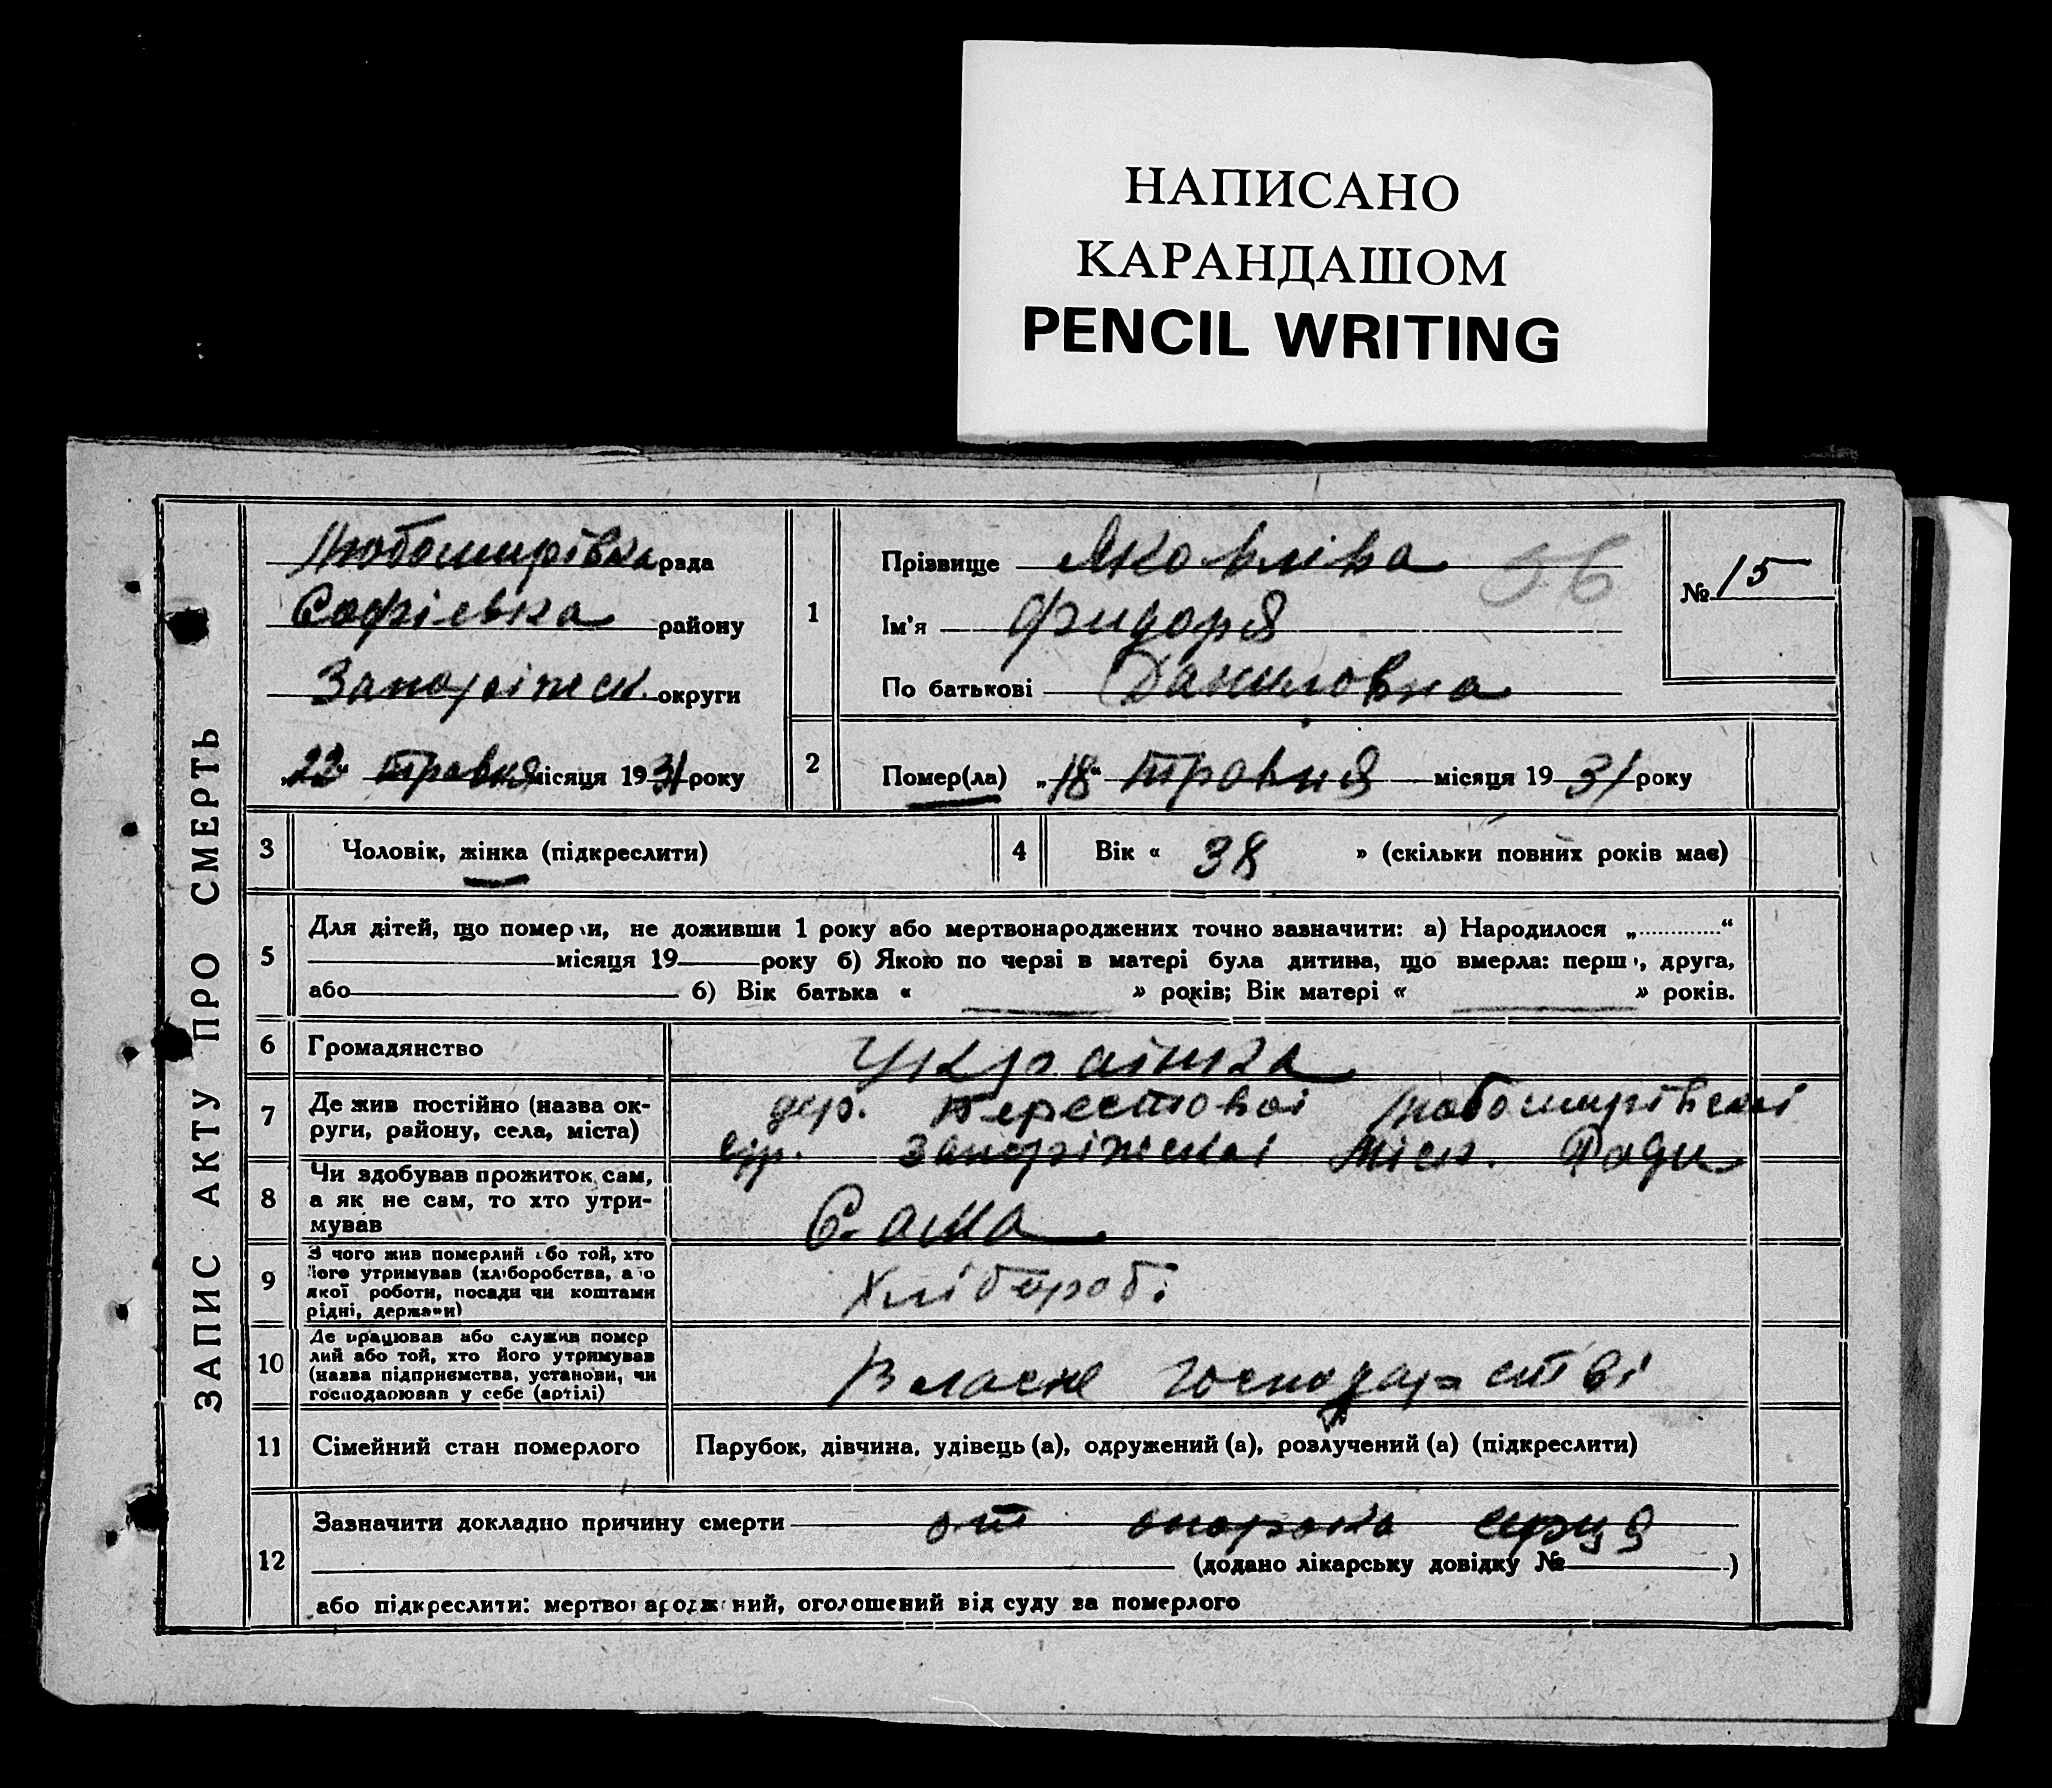 НАПИСАНО
КАРАНДАШОМ
PENCIL WRITING
ЗАПИС АКТУ ПРО СМЕРТЬ
Любомирівка рада
Софіевка району
Запоріжск. округи
„22“ травня місяця 1931 року
1
Прізвище Яковліва
56
Ім'я Фидоря
По батькові Даниловна
№ 15
2
Помер(ла) „18“ травня місяця 1931 року
3 Чоловік, жінка (підкреслити)
4 Вік « 38 » (скільки повних років має)
5
Для дітей, що померли, не доживши 1 року або мертвонароджених точно зазначити: а) Народилося „.............“
місяця 19 року б) Якою по черзі в матері була дитина, що вмерла: перша, друга,
або б) Вік батька « » років; Вік матері « » років.
6 Громадянство Українка
7
Де жив постійно (назва ок-
руги, району, села, міста)
дер. Берестовоі Любомирівскоі
Запоріжскоі Міск. Ради
8
Чи здобував прожиток сам,
а як не сам, то хто утри-
мував
Сама
9
З чого жив померлий або той, хто
його утримував (хліборобства, або
якої роботи, посади чи коштами
рідні, держави)
Хлібороб.
10
Де працював або служив помер
лий або той, хто його утримував
(назва підприємства, установи, чи
господарював у себе (артілі)
Власне господар=стві
11 Сімейний стан померлого
Парубок, дівчина, удівець (а), одружений (а), розлучений (а) (підкреслити)
12
Зазначити докладно причину смерти от опорока серця
(додано лікарську довідку № )
або підкреслити: мертвонароджений, оголошений від суду за померлого